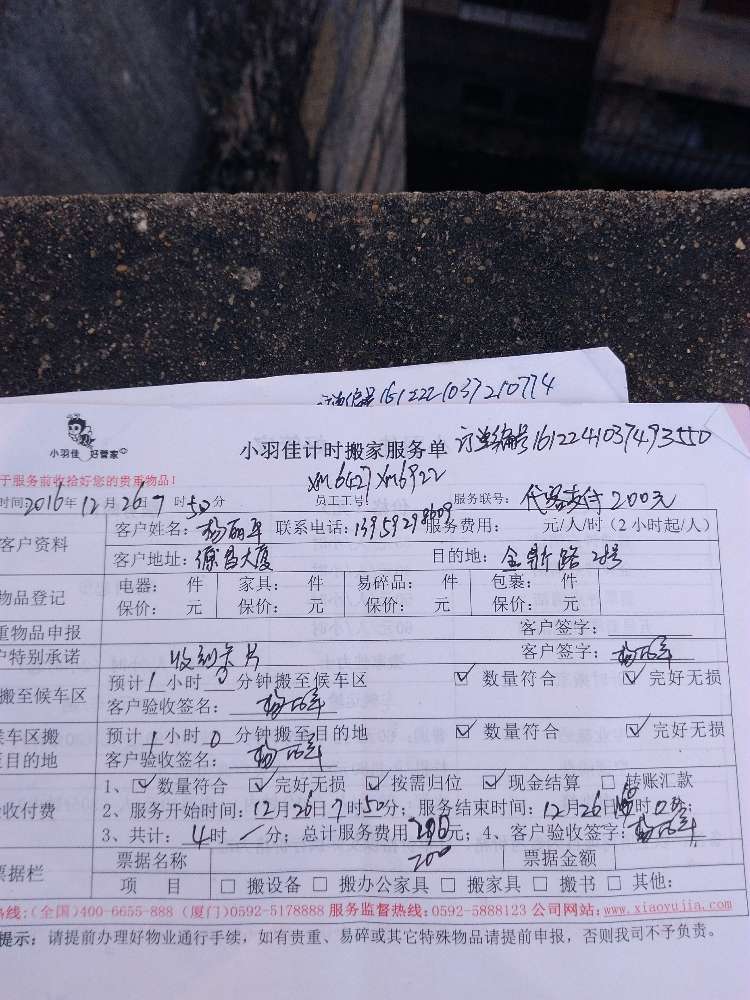 订单编号1612221037210774
小羽佳 好管家
小羽佳计时搬家服务单 订单编号161224103749355 0
子服务前收拾好您的贵重物品!
xm6427 xm6922
时间:2016年12月26日7时50分 员工工号: 服务联号: 代客支付200元
客户资料 客户姓名:杨丽军 联系电话: 服务费用: 元/人/时(2小时起/人)
客户地址:德昌大厦 目的地:金新路28号
物品登记 电器: 件 家具: 件 易碎品: 件 包裹: 件
保价: 元 保价: 元 保价: 元 保价: 元
重物品申报 客户签字:
户特别承诺 收到卡片 客户签字:
搬至候车区 预计1小时0分钟搬至候车区 ☑ 数量符合 ☑ 完好无损
客户验收签名:
候车区搬 预计1小时0分钟搬至目的地 ☑ 数量符合 ☑ 完好无损
至目的地 客户验收签名:
验收付费 1、☑ 数量符合 ☑ 完好无损 ☑ 按需归位 ☑ 现金结算 □ 转账汇款
2、服务开始时间:12月26日7时50分; 服务结束时间:12月26日 时0分;
3、共计:4时/分; 总计服务费用 元; 4、客户验收签字:
200
票据栏 票据名称 票据金额
项 目 □ 搬设备 □ 搬办公家具 □ 搬家具 □ 搬书 □ 其他:
热线:(全国)400-6655-888 (厦门)0592-5178888 服务监督热线:0592-5888123 公司网站:www.xiaoyujia.com
提示:请提前办理好物业通行手续,如有贵重、易碎或其它特殊物品请提前申报,否则我司不予负责。